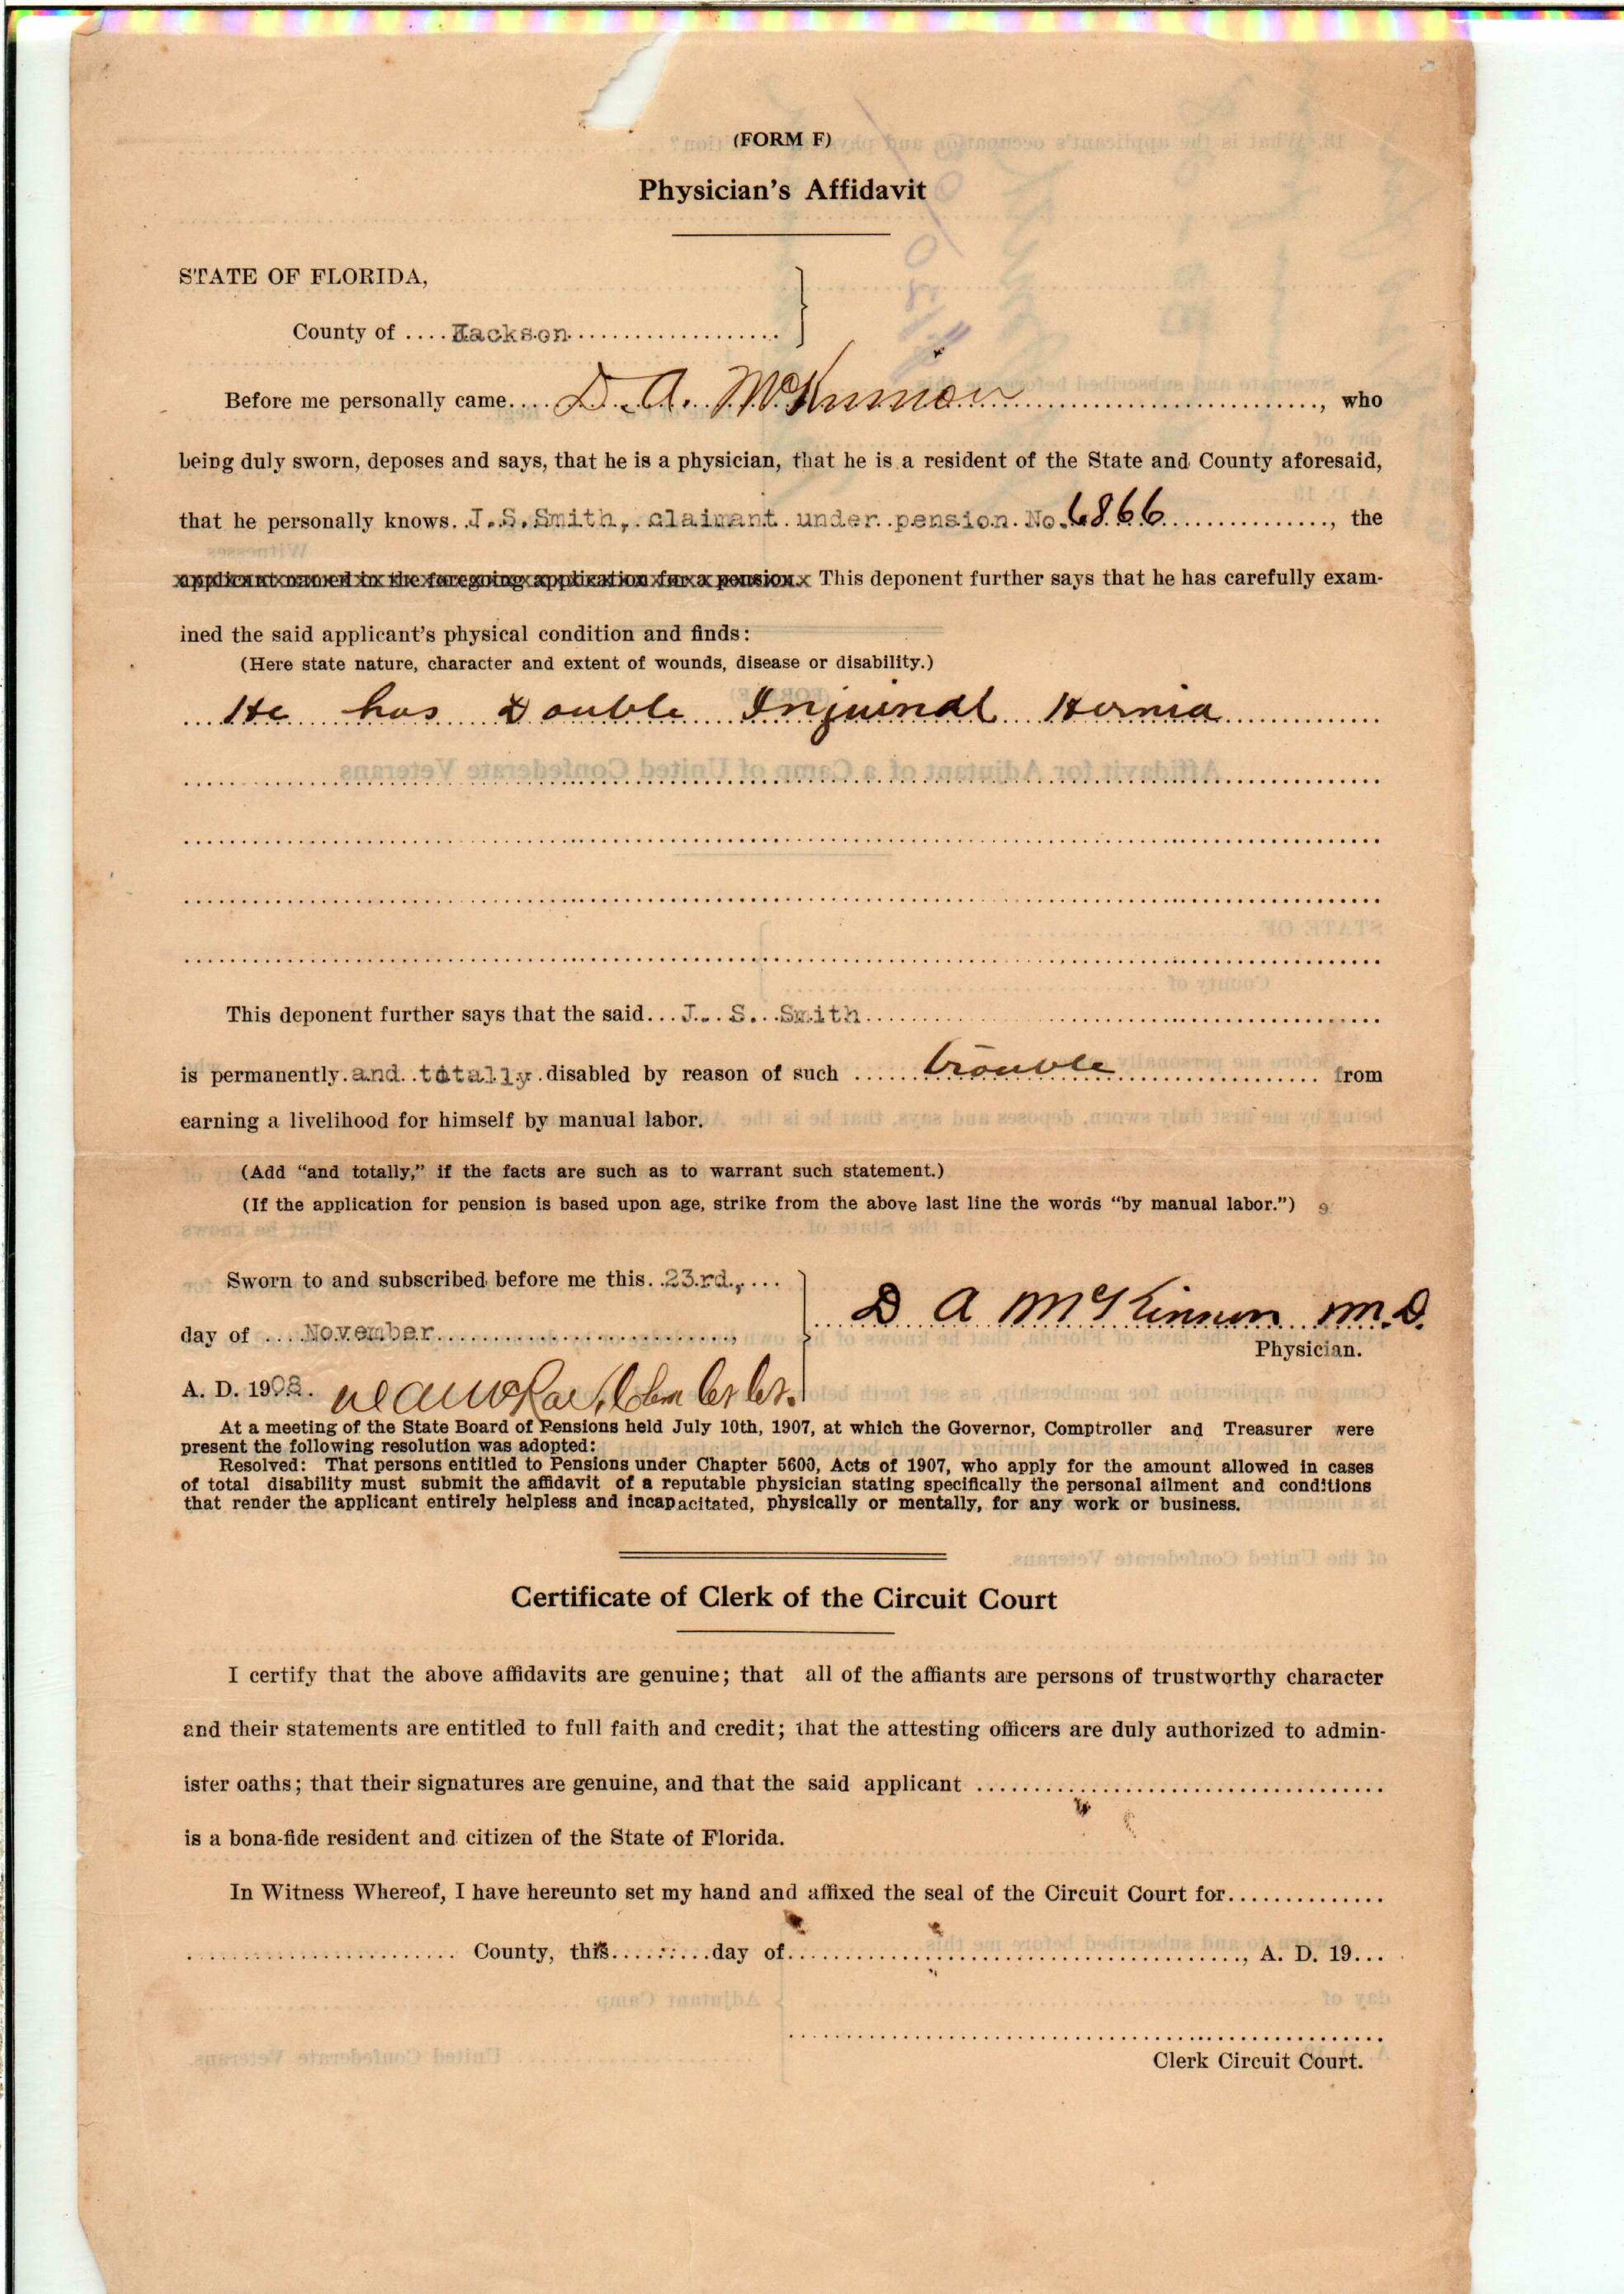 (FORM F)
Physician's Affidavit
STATE OF FLORIDA,
County of .... Jackson
Before me personally came.... D. A. McKinnon ...., who
being duly sworn, deposes and says, that he is a physician, that he is a resident of the State and County aforesaid,
that he personally knows. J. S. Smith, claimant under pension No. 6866 ...., the
applicant named in the foregoing application for a pension. This deponent further says that he has carefully exam-
ined the said applicant's physical condition and finds:
(Here state nature, character and extent of wounds, disease or disability.)
He has Double Injuinal Hernia
This deponent further says that the said... J. S. Smith
is permanently and totally disabled by reason of such ..... trouble ..... from
earning a livelihood for himself by manual labor.
(Add "and totally," if the facts are such as to warrant such statement.)
(If the application for pension is based upon age, strike from the above last line the words "by manual labor.")
Sworn to and subscribed before me this. 23rd.,
day of .... November ....,
D A McKinnon M.D.
Physician.
A. D. 1908.
At a meeting of the State Board of Pensions held July 10th, 1907, at which the Governor, Comptroller and Treasurer were
present the following resolution was adopted:
Resolved: That persons entitled to Pensions under Chapter 5600, Acts of 1907, who apply for the amount allowed in cases
of total disability must submit the affidavit of a reputable physician stating specifically the personal ailment and conditions
that render the applicant entirely helpless and incapacitated, physically or mentally, for any work or business.
Certificate of Clerk of the Circuit Court
I certify that the above affidavits are genuine; that all of the affiants are persons of trustworthy character
and their statements are entitled to full faith and credit; that the attesting officers are duly authorized to admin-
ister oaths; that their signatures are genuine, and that the said applicant ....
is a bona-fide resident and citizen of the State of Florida.
In Witness Whereof, I have hereunto set my hand and affixed the seal of the Circuit Court for....
.... County, this.... day of...., A. D. 19...
Clerk Circuit Court.